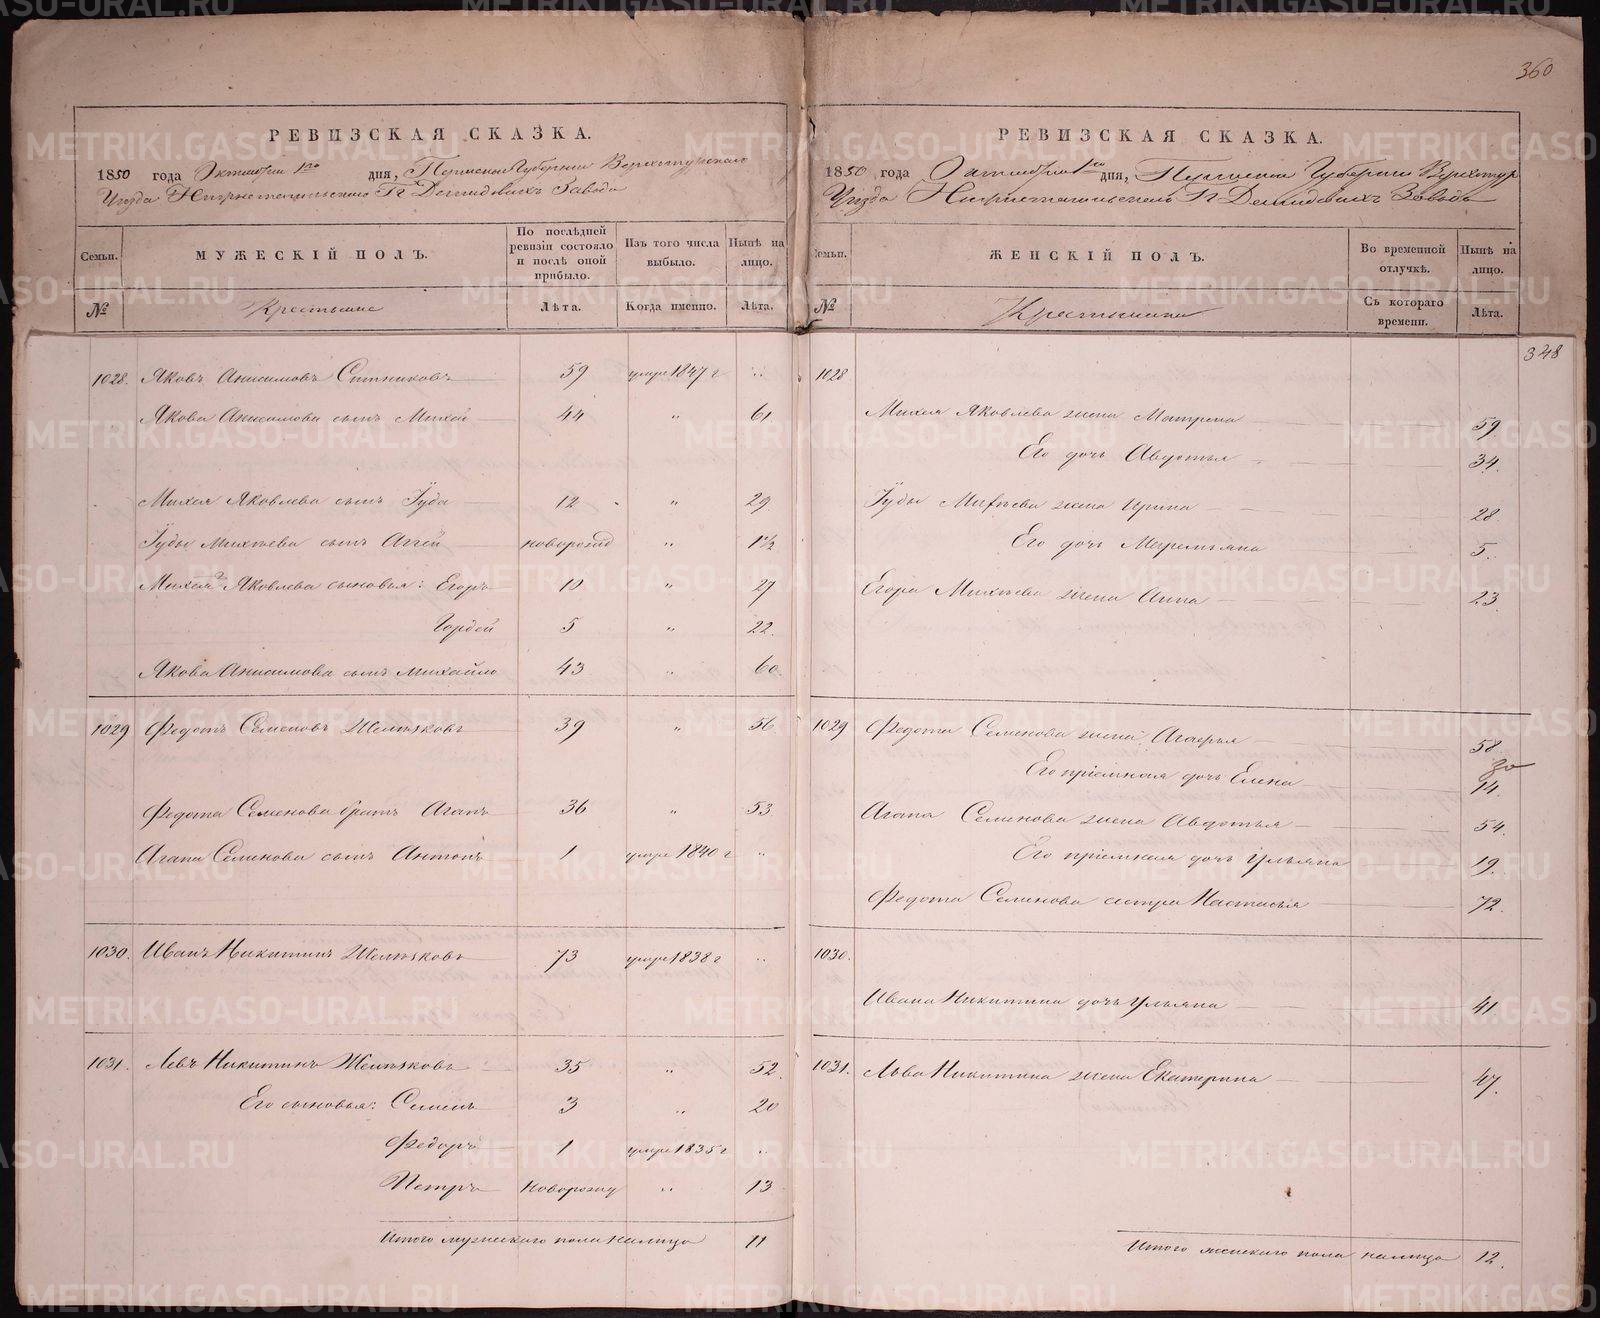 360
РЕВИЗСКАЯ СКАЗКА.
1850 года Октября 1го дня, Пермской Губернии Верхотурского
Уезда Нижнетагильского Гг Демидовыхъ Завода
Семьи. МУЖЕСКІЙ ПОЛЪ. По послѣдней ревизіи состояло и послѣ оной прибыло. Изъ того числа выбыло. Нынѣ на лицо.
№ Крестьяне Лѣта. Когда именно. Лѣта.
1028. Яковъ Анисимовъ Ситниковъ 59 умре 1847 г
Якова Анисимова сынъ Михей 44 " 61
Михея Яковлева сынъ Іуда 12 " 29
Іуды Михѣева сынъ Аггей новорожд " 1½
Михея Яковлева сыновья: Егоръ 10 " 27
Гордей 5 " 22.
Якова Анисимова сынъ Михайло 43 " 60.
1029 Федотъ Семеновъ Желѣзковъ 39 " 56
Федота Семенова братъ Агапъ 36 " 53
Агапа Семенова сынъ Антонъ 1 умре 1840 г "
1030. Иванъ Никитинъ Желѣзковъ 73 умре 1838 г
1031. Левъ Никитинъ Желѣзковъ 35 " 52.
Его сыновья: Семенъ 3 " 20
Федоръ 1 умре 1835 г
Петръ новорожд " 13
Итого мужескаго пола налицо 11
РЕВИЗСКАЯ СКАЗКА.
1850 года Октября 1го дня, Пермской Губернии Верхотур
Уезда Нижнетагильского Гг Демидовыхъ Завода
Семьи. ЖЕНСКІЙ ПОЛЪ. Во временной отлучкѣ. Нынѣ на лицо.
№ Крестьянки Съ котораго времени. Лѣта.
348
1028
Михея Яковлева жена Матрена 59
Его дочь Авдотья 34.
Іуды Михѣева жена Ирина 28
Его дочь 5.
Егора Михѣева жена Анна 23
1029 Федота Семенова жена Агафья 58
Его пріемная дочь Елена 14.
Агапа Семенова жена Авдотья 54.
Его пріемная дочь Ульяна 19.
Федота Семенова сестра Настасья 72.
1030.
Ивана Никитина дочь Ульяна 41
1031. Льва Никитина жена Екатерина 47.
Итого женскаго пола налицо 12.
METRIKI.GASO-URAL.RU